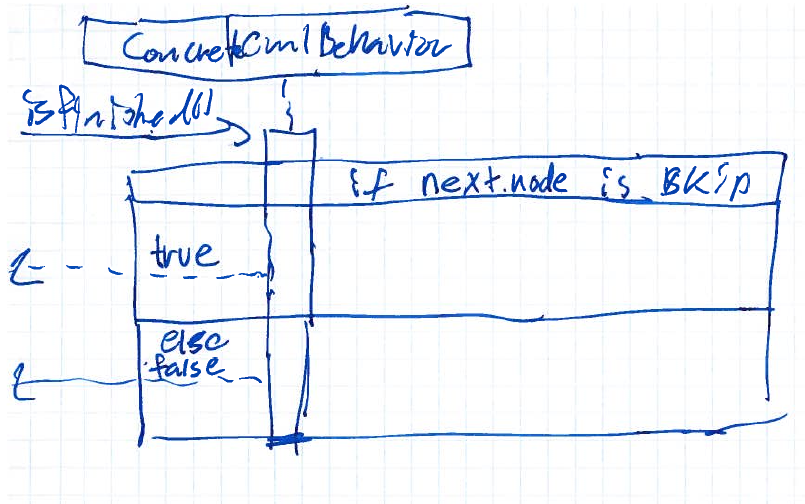 ConcreteCmlBehavior
isFinished()
if next.node is BKip
true
else
false